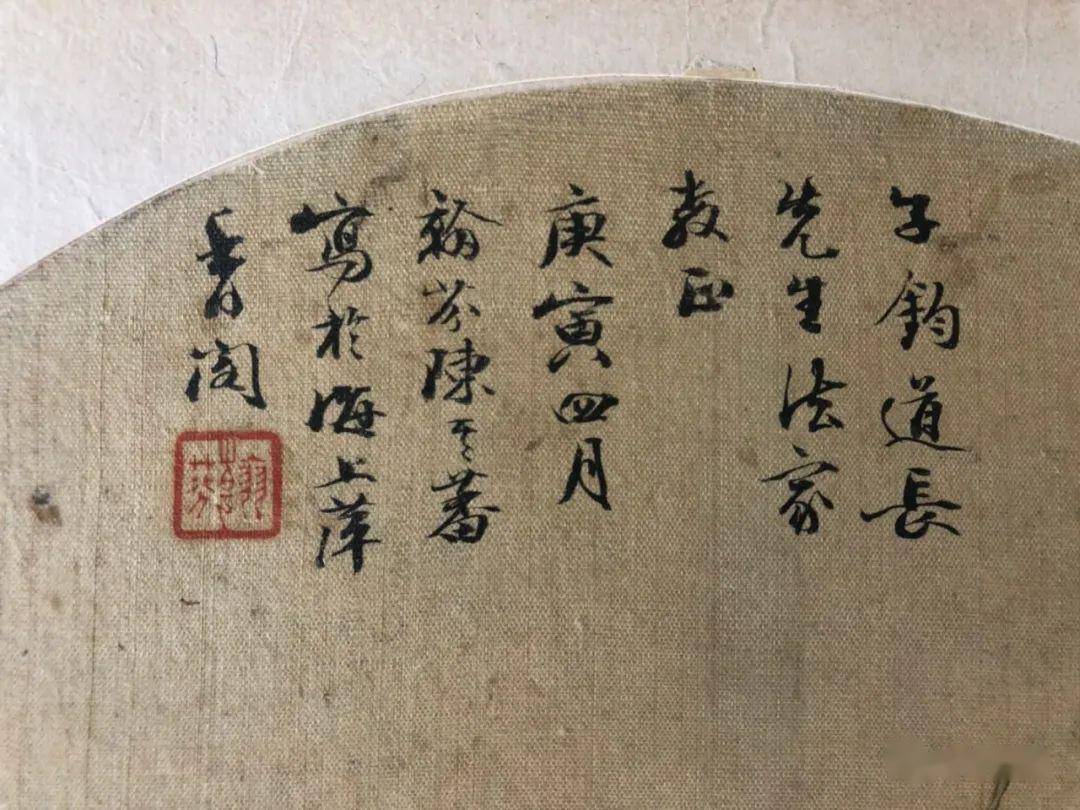 子鈞道長
先生法家
教正
庚寅四月
翰芬陳蕃
寫於海上萍
香閣
翰芬